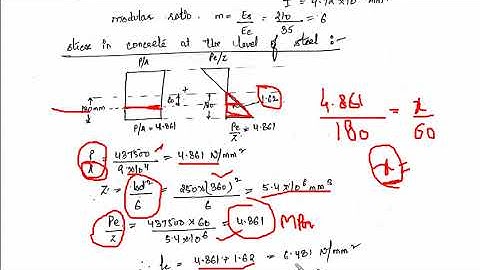 I = 9.72 × 10⁸ mm
modular ratio. m = Es/Ec = 210/35 = 6
stress in concrete at the level of steel :-
P/A Pe/Z
60 + 180 1.62
180mm
P/A = 4.861 Pe/Z = 4.861
4.861/180 = x/60
P/A = 437500/9×10⁴ = 4.861 N/mm²
x =
Z = bd²/6 = 250×(360)²/6 = 5.4×10⁶ mm³
Pe/Z = 437500×60/5.4×10⁶ = 4.861 MPa
∴ fc = 4.861 + 1.62 = 6.481 N/mm²